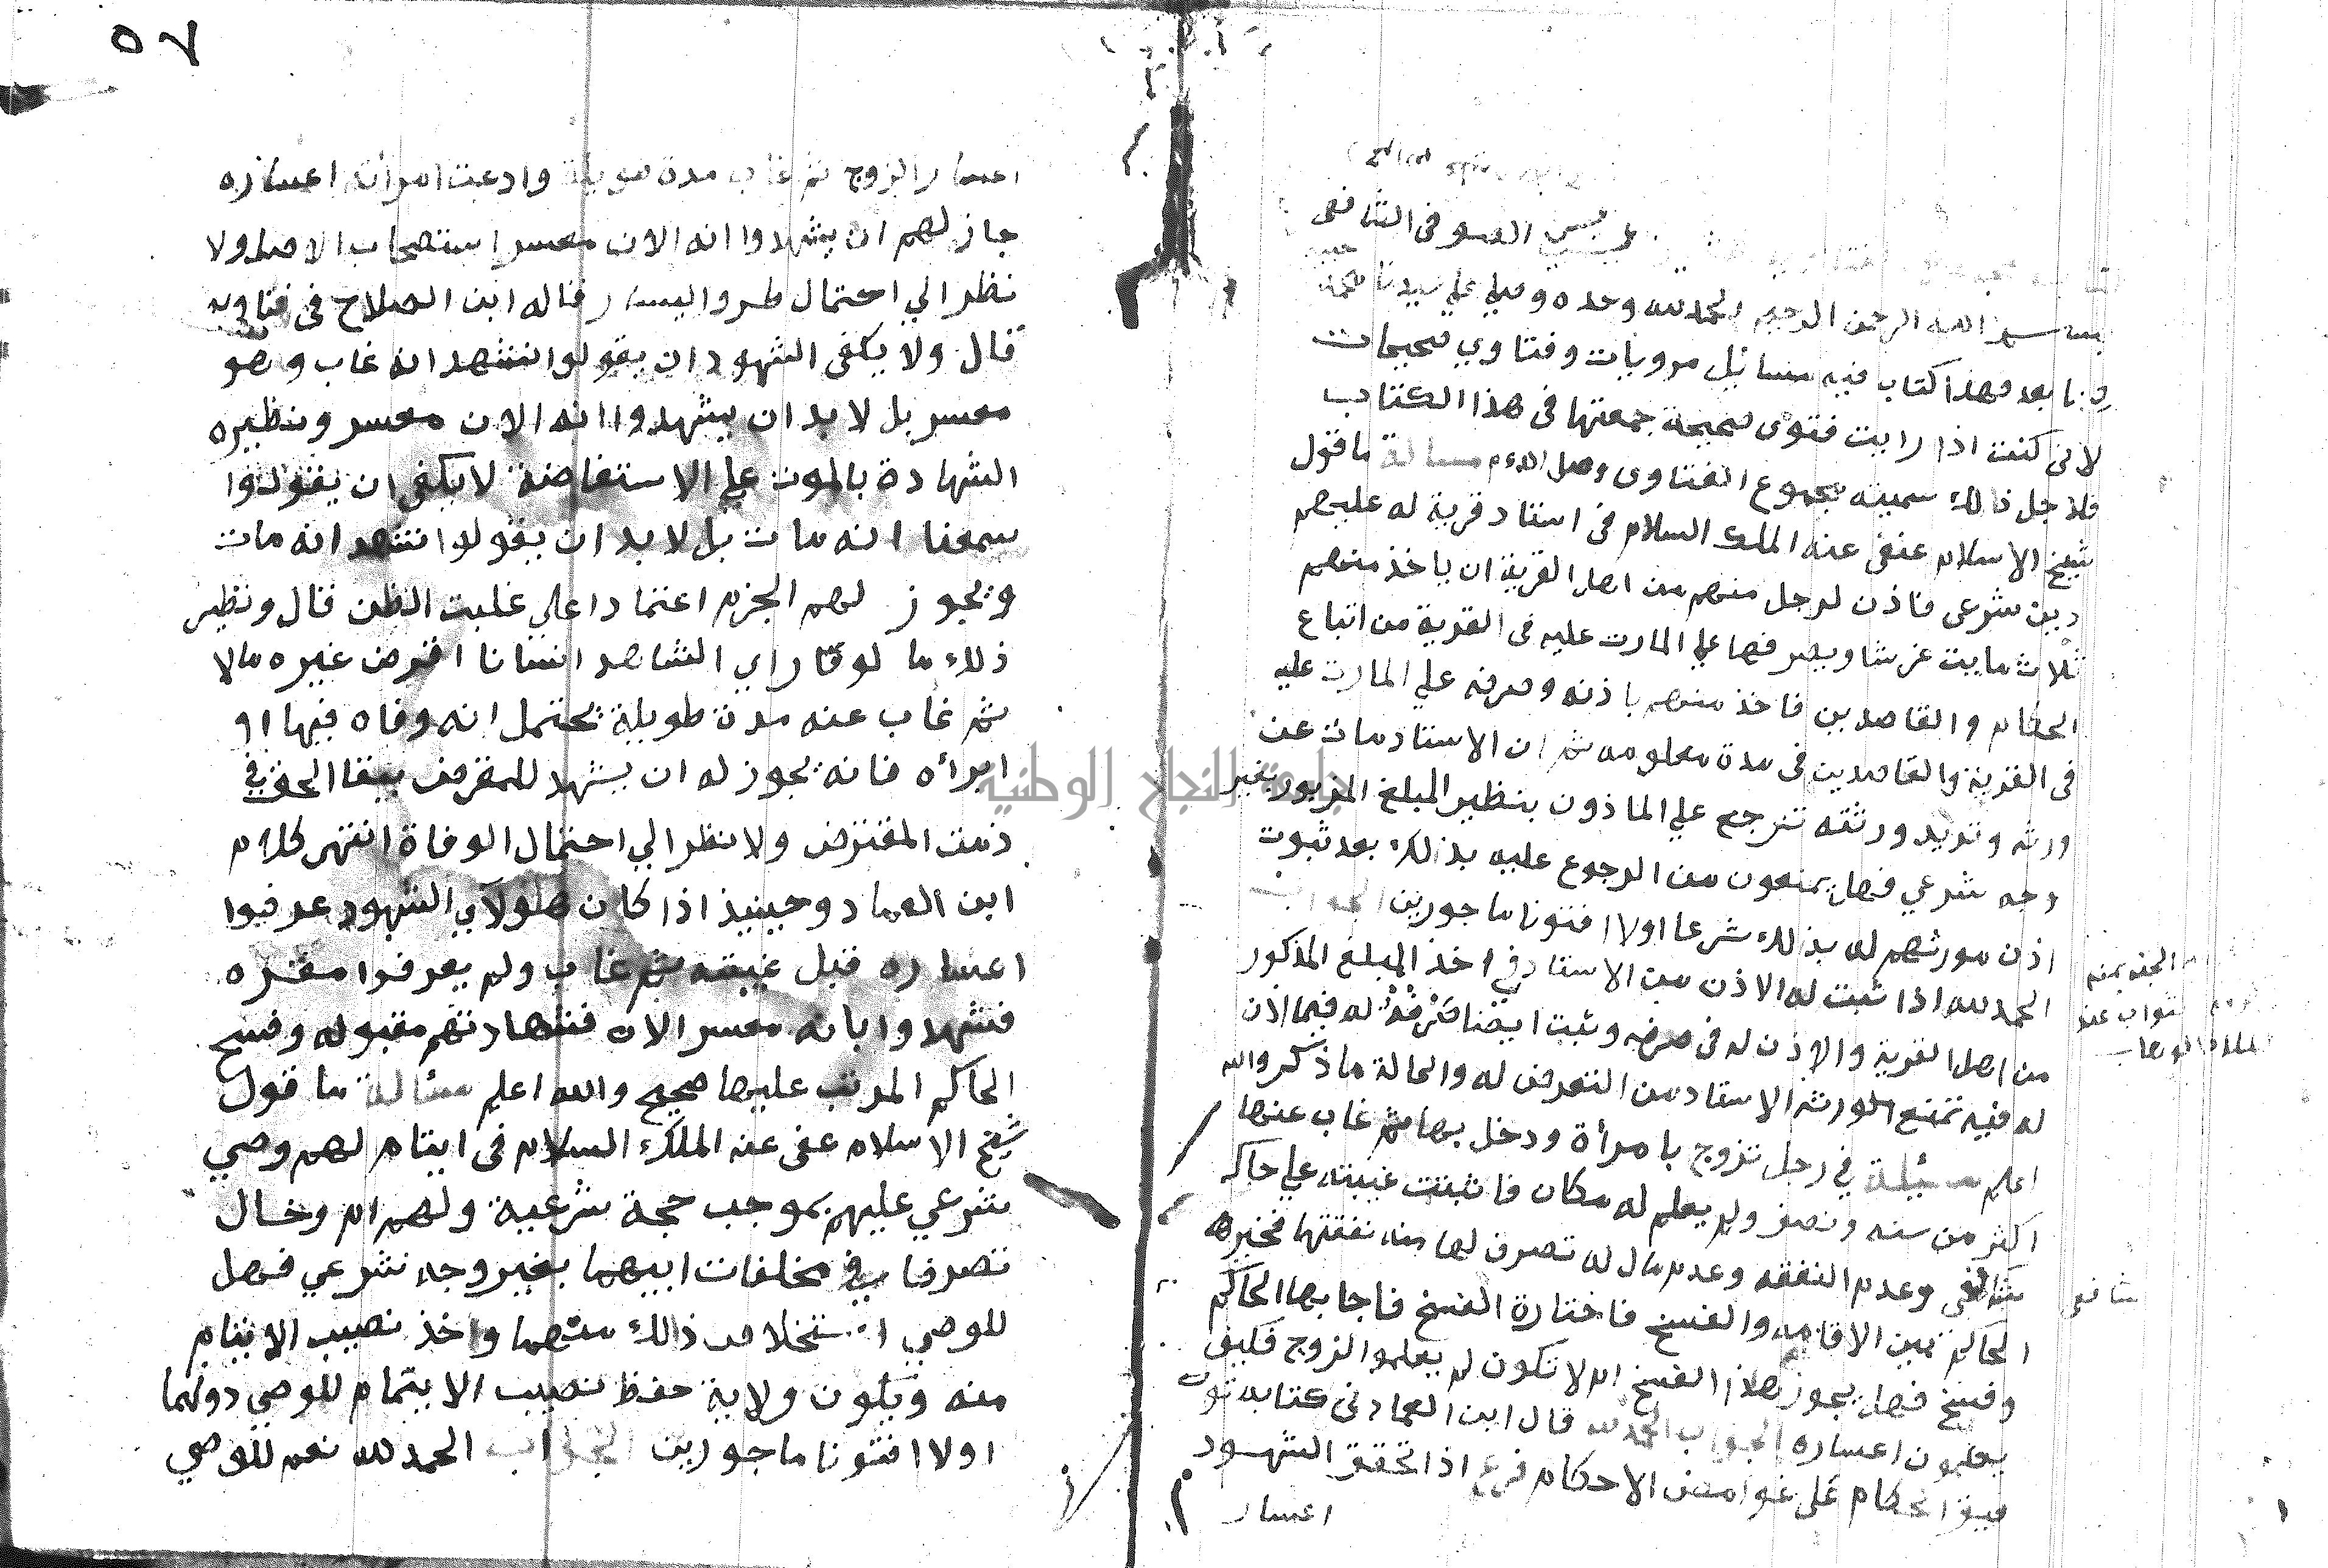 العوفى الشافعى
بسم الله الرحمن الرحيم الحمد لله وحده وصلي علي سيدنا محمد
وبعد فهذا كتاب فيه مسائيل مرويات وفتاوي صحيحات
لاني كنت اذا رايت فتوى صحيحة جمعتها فى هذا الكتاب
فلاجل ذالك سميته مجموع الفتاوى وصل اللهم مسالة ما قول
شيخ الاسلام عنفى عنه الملك السلام فى استاد قرية له عليهم
دين شرعى فاذن لرجل منهم من اهل القرية ان ياخذ منهم
ثلاث مايت غرشا ويصرفها علي المارت عليه فى القرية من اتباع
الحكام والقاصدين فاخذ منهم باذنه وصرفه علي المارت عليه
فى القرية والقاصدين فى مدة معلومه ثم ان الاستاد مات عن
ورثه وتريد ورثته ترجع علي الماذون بنظير المبلغ المزبور بغير
وجه شرعي فهل يمنعون من الرجوع عليه بذلك بعد ثبوت
اذن مورثهم له بذلك شرعا اولا افتونا ماجورين الجواب
الحمد لله اذا ثبت له الاذن من الاستاد في اخذ المبلغ المذكور
من اهل القرية والاذن له فى صرفه وثبت ايضا صَرْفُهُ له فيما اذن
له فيه تمتنع الورثه الاستاد من التعرض له والحالة ما ذكر والله
اعلم مسئيلة في رجل تزوج بامرأة ودخل بها ثم غاب عنها
اكثر من سنه ونصف ولم يعلم له مكان فاثبتت غيبته علي حاكم
شافعى وعدم النفقه وعدم مال له تصرف لها منه نفقتها فخيرها
الحاكم بين الاقامه والفسخ فاختارة الفسخ فاجابها الحاكم
وفسخ فهل يجوز هاذا الفسخ ام لا تكون لم يعلموا الزوج فكيف
يعلمون اعساره الجواب الحمد لله قال ابن العماد فى كتابه توق
قيف الحكام على غوامض الاحكام فرع اذا تحقق الشهود
اعسار
شافعى
٥٧
اعسار الزوج ثم غاب مدة طويلة وادعت امرأته اعساره
جاز لهم ان يشهدوا انه الان معسر استصحاب الاصل ولا
نظر الي احتمال طرو اليسار قاله ابن الصلاح فى فتاويه
قال ولا يكفى الشهود ان يقولوا نشهد انه غاب وهو
معسر بل لا بد ان يشهدوا انه الان معسر ونظيره
الشهادة بالموت علي الاستفاضة لا يكفى ان يقولوا
سمعنا انه مات بل لا بد ان يقولوا نشهد انه مات
ويجوز لهم الجزم اعتمادا علي غلبت الظن قال ونظير
ذلك ما لو راي الشاهد انسانا اقرض غيره مالا
ثم غاب عنه مدة طويلة يحتمل انه وفاه فيها او
ابرأه فانه يجوز له ان يشهد للمقرض ببقا الحق في
ذمت المقترض ولا نظر الي احتمال الوفاة انتهى كلام
ابن العماد وحينيذ اذا كان هولآي الشهود عرفوا
اعساره قبل غيبته ثم غاب ولم يعرفوا مقره
فشهدوا بانه معسر الان فشهادتهم مقبوله وفسخ
الحاكم المرتب عليها صحيح والله اعلم مسئالة ما قول
شيخ الاسلام عفى عنه الملك السلام فى ايتام لهم وصي
شرعي عليهم بموجب حجة شرعية ولهم ام وخال
تصرفا في مخلفات ابيهما بغير وجه شرعي فهل
للوصي استخلاص ذالك منهما واخذ نصيب الايتام
منه ويكون ولاية حفظ نصيب الايتام للوصي دونهما
اولا افتونا ماجورين الجواب الحمد لله نعم للوصي
جامعة النجاح الوطنية